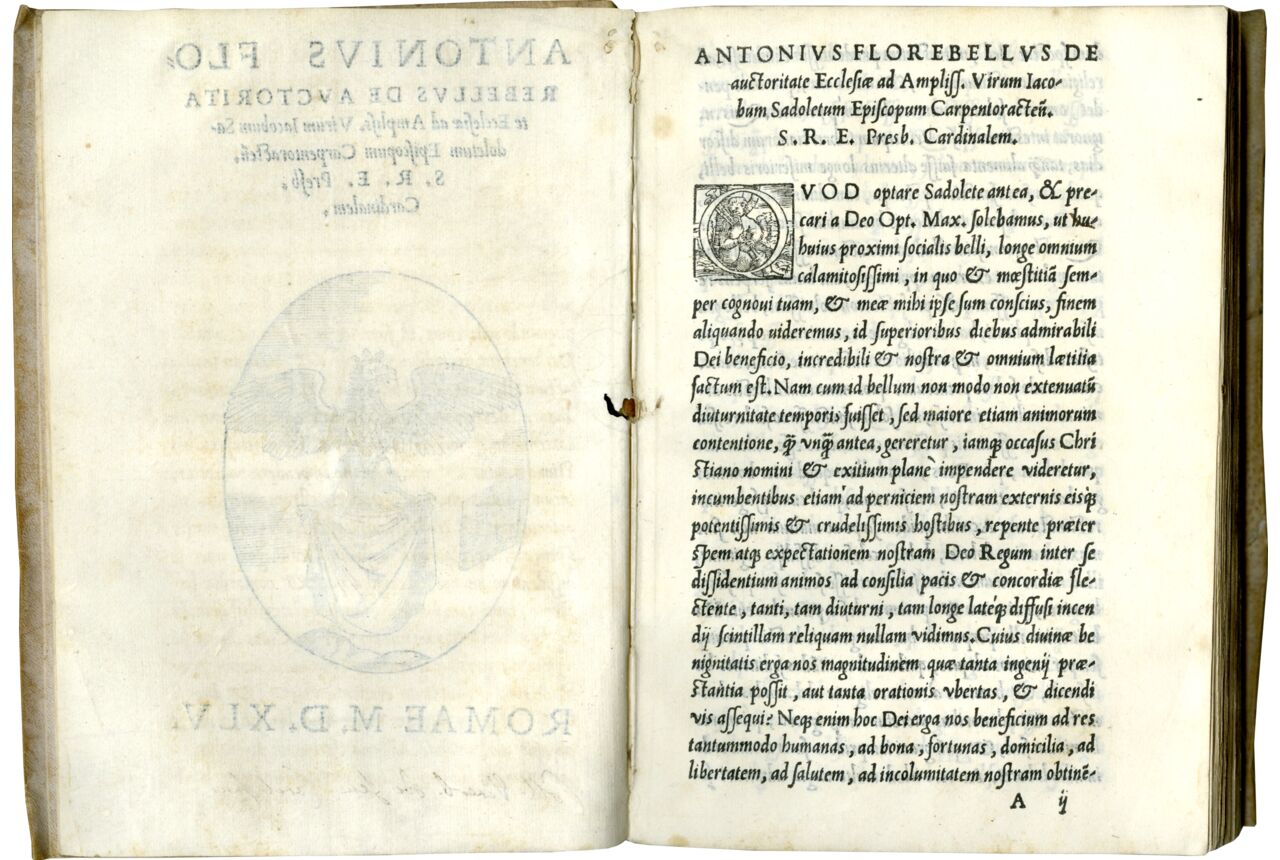 ANTONIVS FLO-
REBELLVS DE AVCTORITA
te Ecclesiæ ad Ampliss. Virum Iacobum Sa-
doletum Episcopum Carpentoracteñ.
S. R. E. Presb.
Cardinalem.
ROMAE M. D. XLV.
ANTONIVS FLOREBELLVS DE
auctoritate Ecclesiæ ad Ampliss. Virum Iaco-
bum Sadoletum Episcopum Carpentoracteñ.
S. R. E. Presb. Cardinalem.
QVOD optare Sadolete antea, & pre-
cari a Deo Opt. Max. solebamus, ut hu-
huius proximi socialis belli, longe omnium
calamitosissimi, in quo & mœstitiã sem-
per cognoui tuam, & meæ mihi ipse sum conscius, finem
aliquando uideremus, id superioribus diebus admirabili
Dei beneficio, incredibili & nostra & omnium lætitia
factum est. Nam cum id bellum non modo non extenuatũ
diuturnitate temporis fuisset, sed maiore etiam animorum
contentione, q̃ vnq̃ antea, gereretur, iamq; occasus Chri
stiano nomini & exitium planè impendere videretur,
incumbentibus etiam ad perniciem nostram externis eisq;
potentissimis & crudelissimis hostibus, repente præter
spem atq; expectationem nostram Deo Regum inter se
dissidentium animos ad consilia pacis & concordiæ fle-
ctente, tanti, tam diuturni, tam longe lateq; diffusi incen
dij scintillam reliquam nullam vidimus. Cuius diuinæ be
nignitatis erga nos magnitudinem quæ tanta ingenij præ-
stantia possit, aut tanta orationis vbertas, & dicendi
vis assequi? Neq; enim hoc Dei erga nos beneficium ad res
tantummodo humanas, ad bona, fortunas, domicilia, ad
libertatem, ad salutem, ad incolumitatem nostram obtinẽ-
A ij